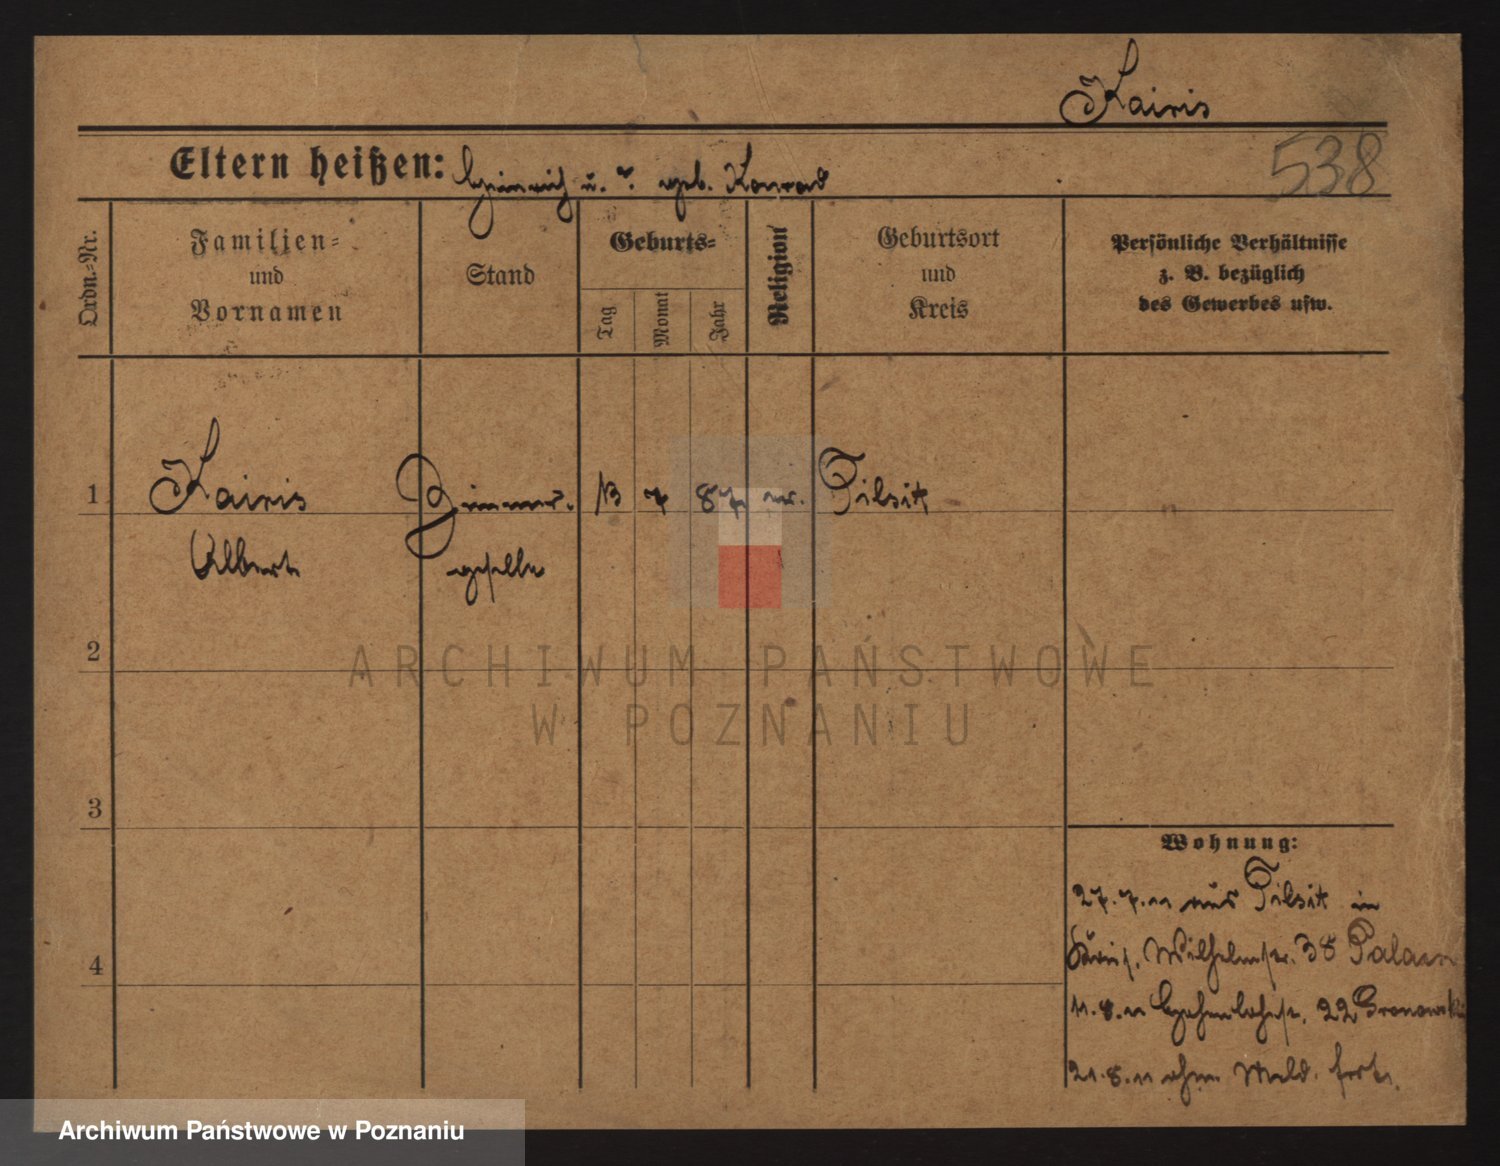 Kairis
Eltern heißen: Heinrich u. geb. Konrad
538
Ordn.-Nr.
Familien-
und
Vornamen
Stand
Geburts-
Tag
Monat
Jahr
Religion
Geburtsort
und
Kreis
Persönliche Verhältnisse
z. B. bezüglich
des Gewerbes usw.
1 Kairis Zimmer- 13 7 87 ev. Tilsit
Albert geselle
2
ARCHIWUM PAŃSTWOWE
W POZNANIU
3
Wohnung:
27.7.11 aus Tilsit in
Wilhelmstr. 38
4
11.8.11 Hohenlohestr. 22 Gronowski
21.8.11 ohne Meld. fort.
Archiwum Państwowe w Poznaniu